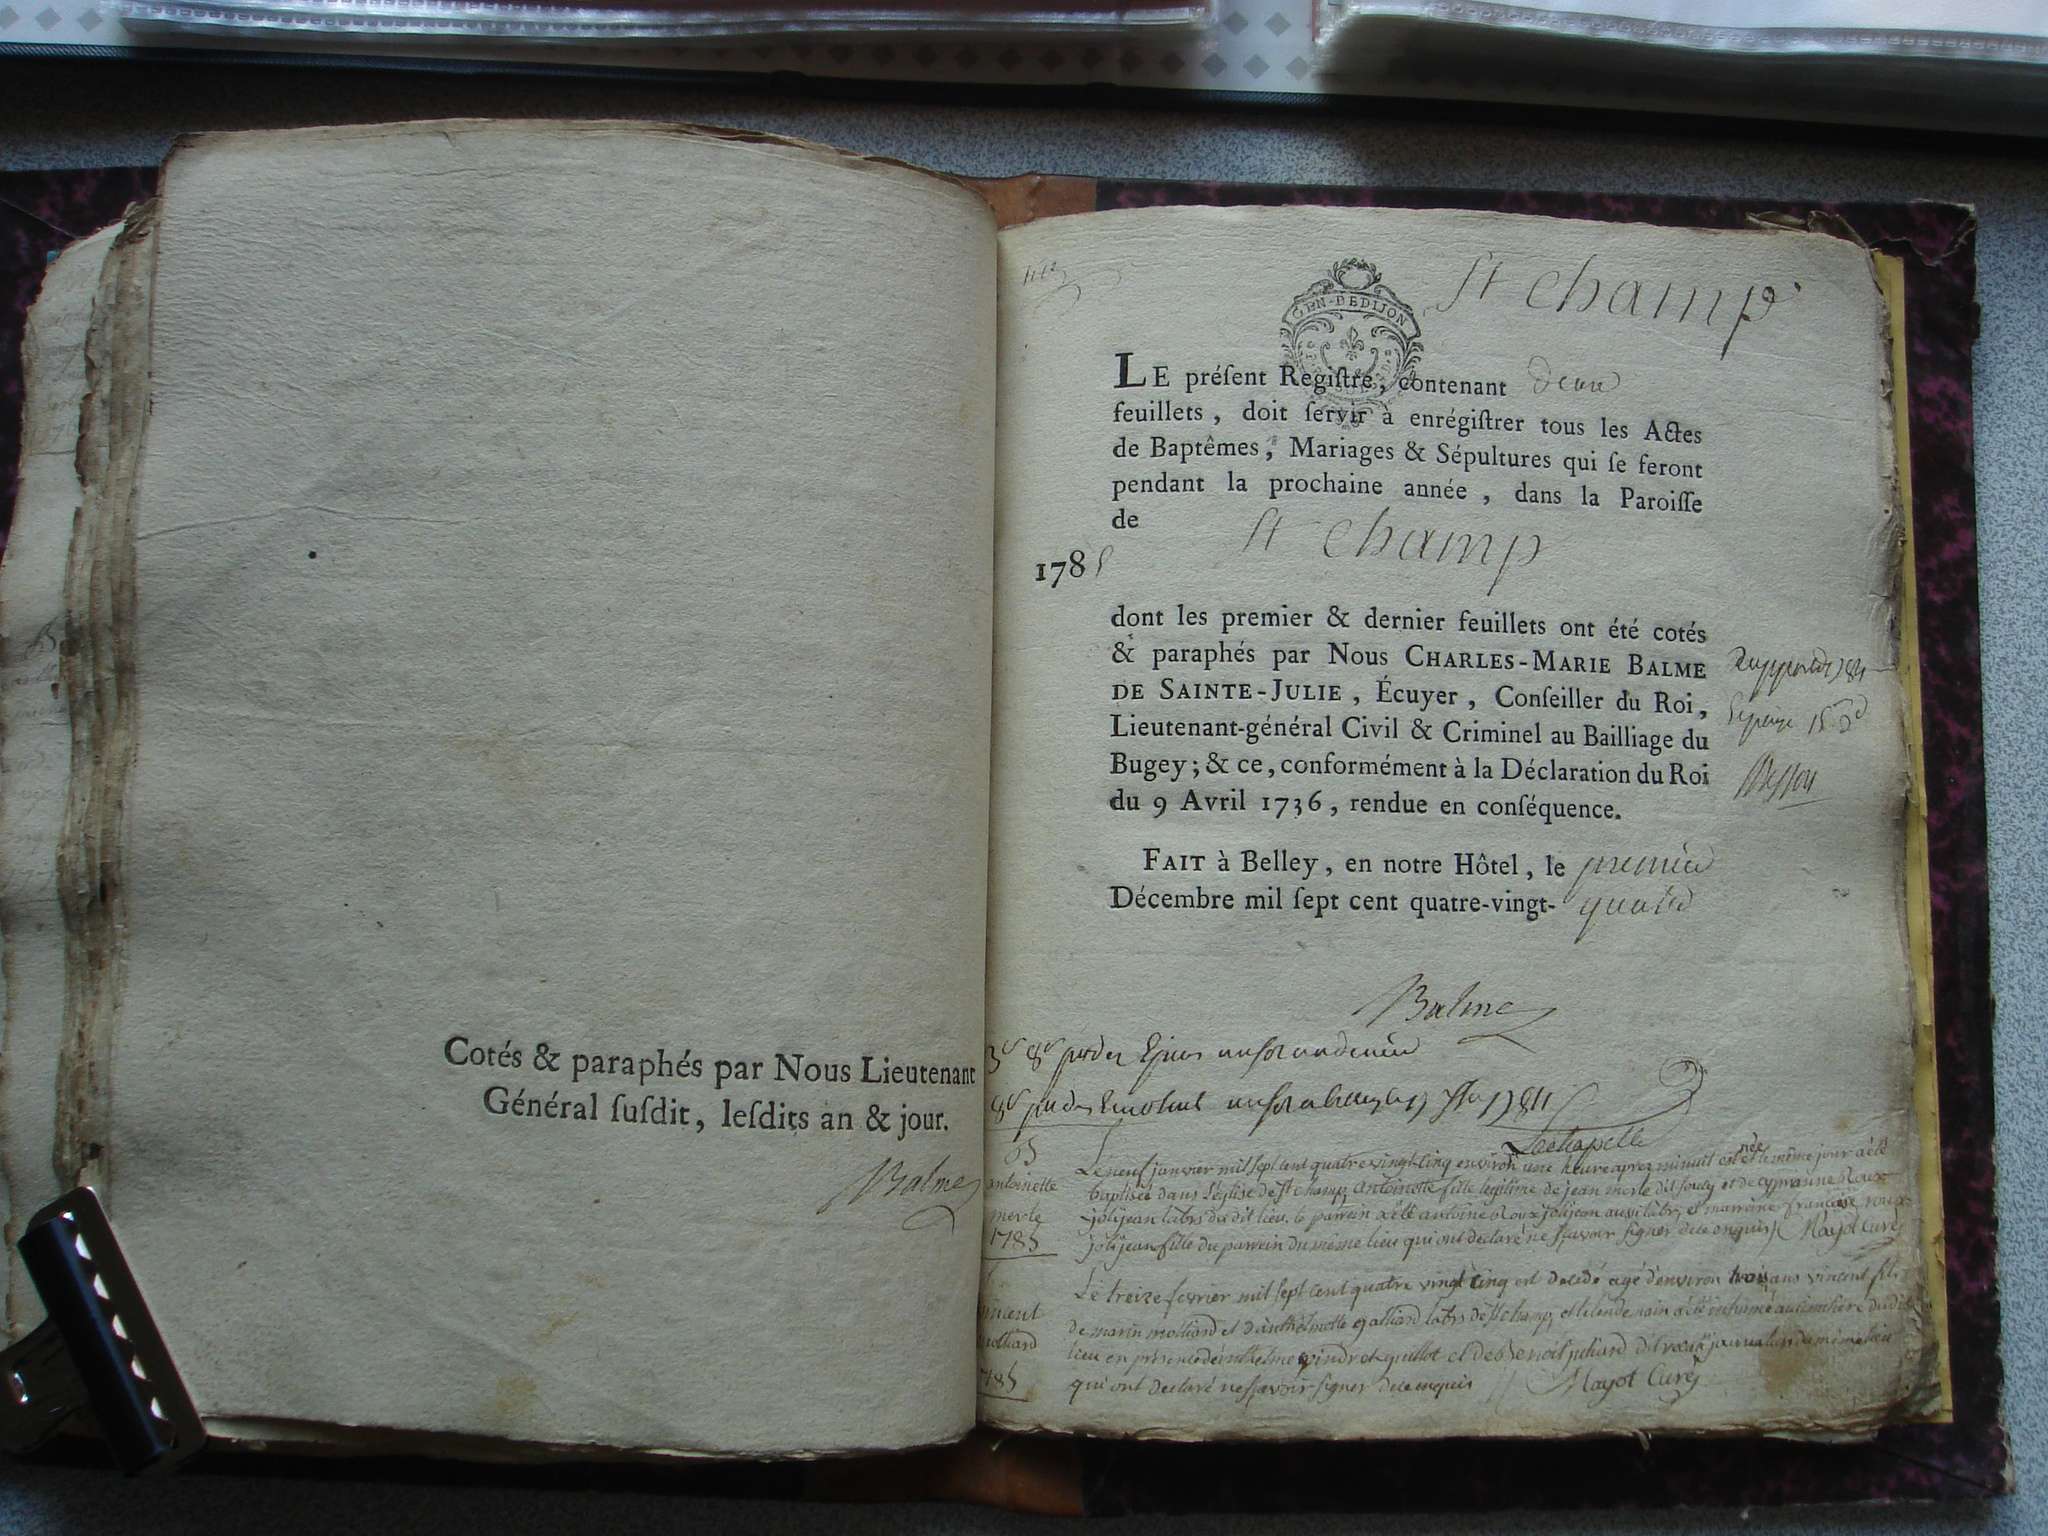 Cotés & paraphés par Nous Lieutenant
Général ſuſdit, leſdits an & jour.
Balme
St champ
GEN·DEDIJON
LE préſent Regiſtre, contenant deux
feuillets, doit ſervir à enrégiſtrer tous les Actes
de Baptêmes, Mariages & Sépultures qui ſe feront
pendant la prochaine année, dans la Paroiſſe
de St champ
1785
dont les premier & dernier feuillets ont été cotés
& paraphés par Nous CHARLES-MARIE BALME
DE SAINTE-JULIE, Écuyer, Conſeiller du Roi,
Lieutenant-général Civil & Criminel au Bailliage du
Bugey; & ce, conformément à la Déclaration du Roi
du 9 Avril 1736, rendue en conſéquence.
FAIT à Belley, en notre Hôtel, le premier
Décembre mil ſept cent quatre-vingt-quatre
Balme
Lachapelle
antoinette
merle
1785
Le neuf janvier mil sept cent quatre vingt cinq environ une heure apres minuit est née et le même jour a été
baptisée dans l'église de st champ antoinette fille legitime de jean merle dit et de Roux
jolijean labrs du dit lieu. le parrein a été antoine Roux jolijean aussi labr, et marreine francoise roux
jolijean fille du parrein du même lieu qui ont declaré ne sçavoir signer de ce enquis Mayot Curé
vincent
molliard
1785
Le treize fevrier mil sept cent quatre vingt cinq est decedé agé d'environ trois ans vincent fils
de marin molliard et d'anthelmette galliard labrs de st champ, et le lendemain a été inhumé au cimetiere du dit
lieu en presence d'anthelme et de Benoit dit journalier du même lieu
qui ont declaré ne sçavoir signer de ce enquis Mayot Curé